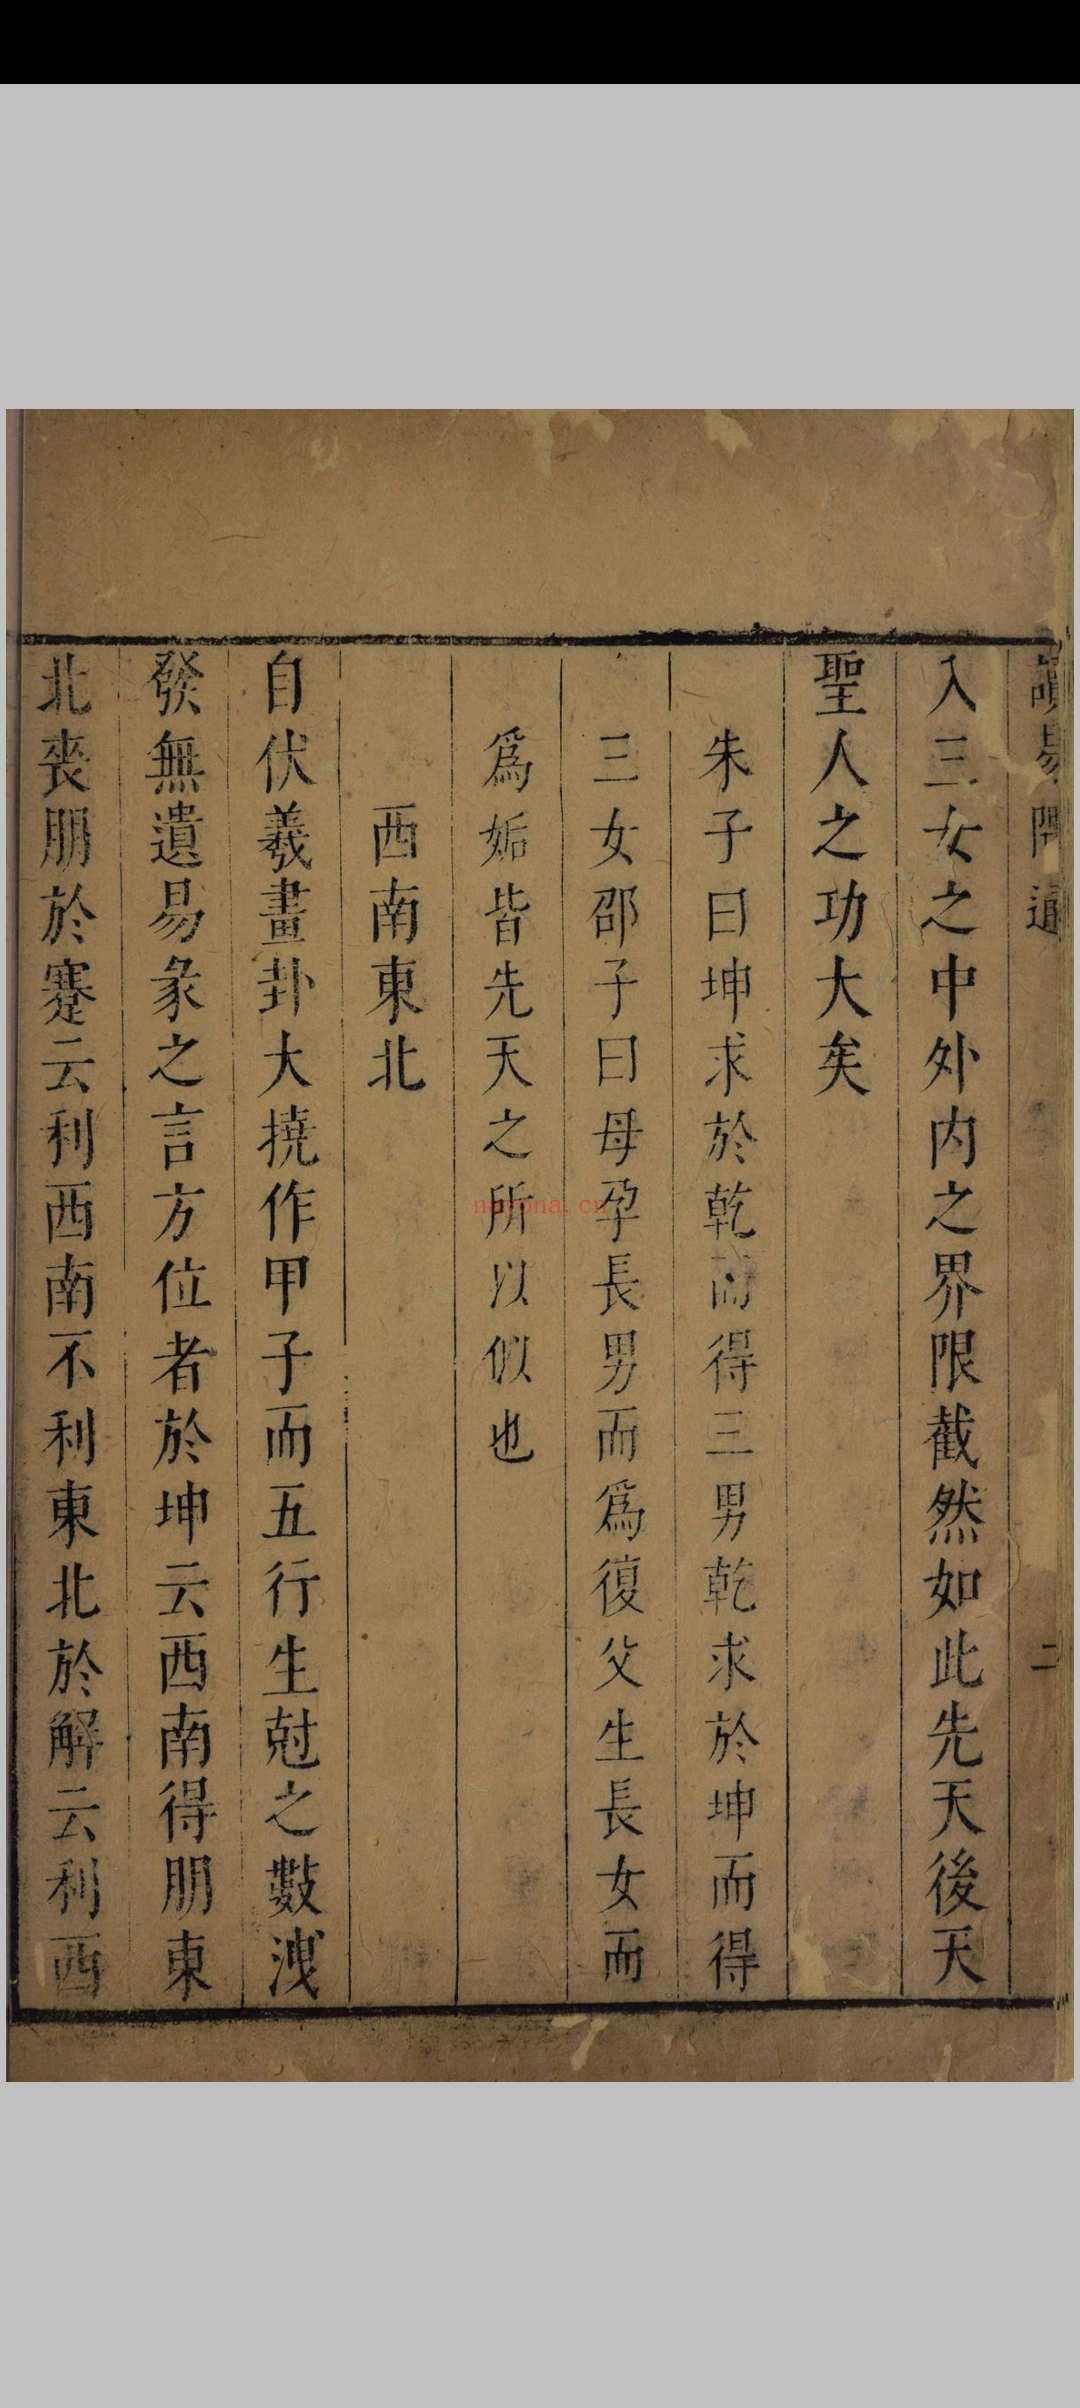 讀易問通 二
入三女之中外内之界限截然如此先天後天
聖人之功大矣
朱子曰坤求於乾而得三男乾求於坤而得
三女邵子曰母孕長男而爲復父生長女而
爲姤皆先天之所以似也
西南東北
自伏羲畫卦大撓作甲子而五行生尅之數洩
發無遺易彖之言方位者於坤云西南得朋東
北喪朋於蹇云利西南不利東北於解云利西
nayona.cn